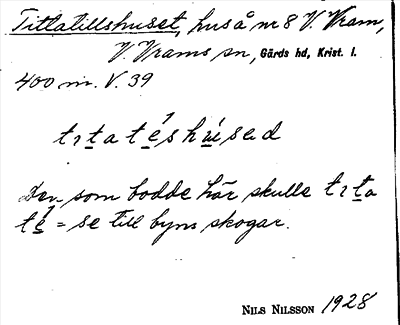 Tittatillshuset, hus å nr 8 V. Vram,
V. Vrams sn, Gärds hd, Krist. l.
400 m. V. 39
tıtatéshúsed
Den som bodde här skulle tıta
té = se till byns skogar.
NILS NILSSON 1928